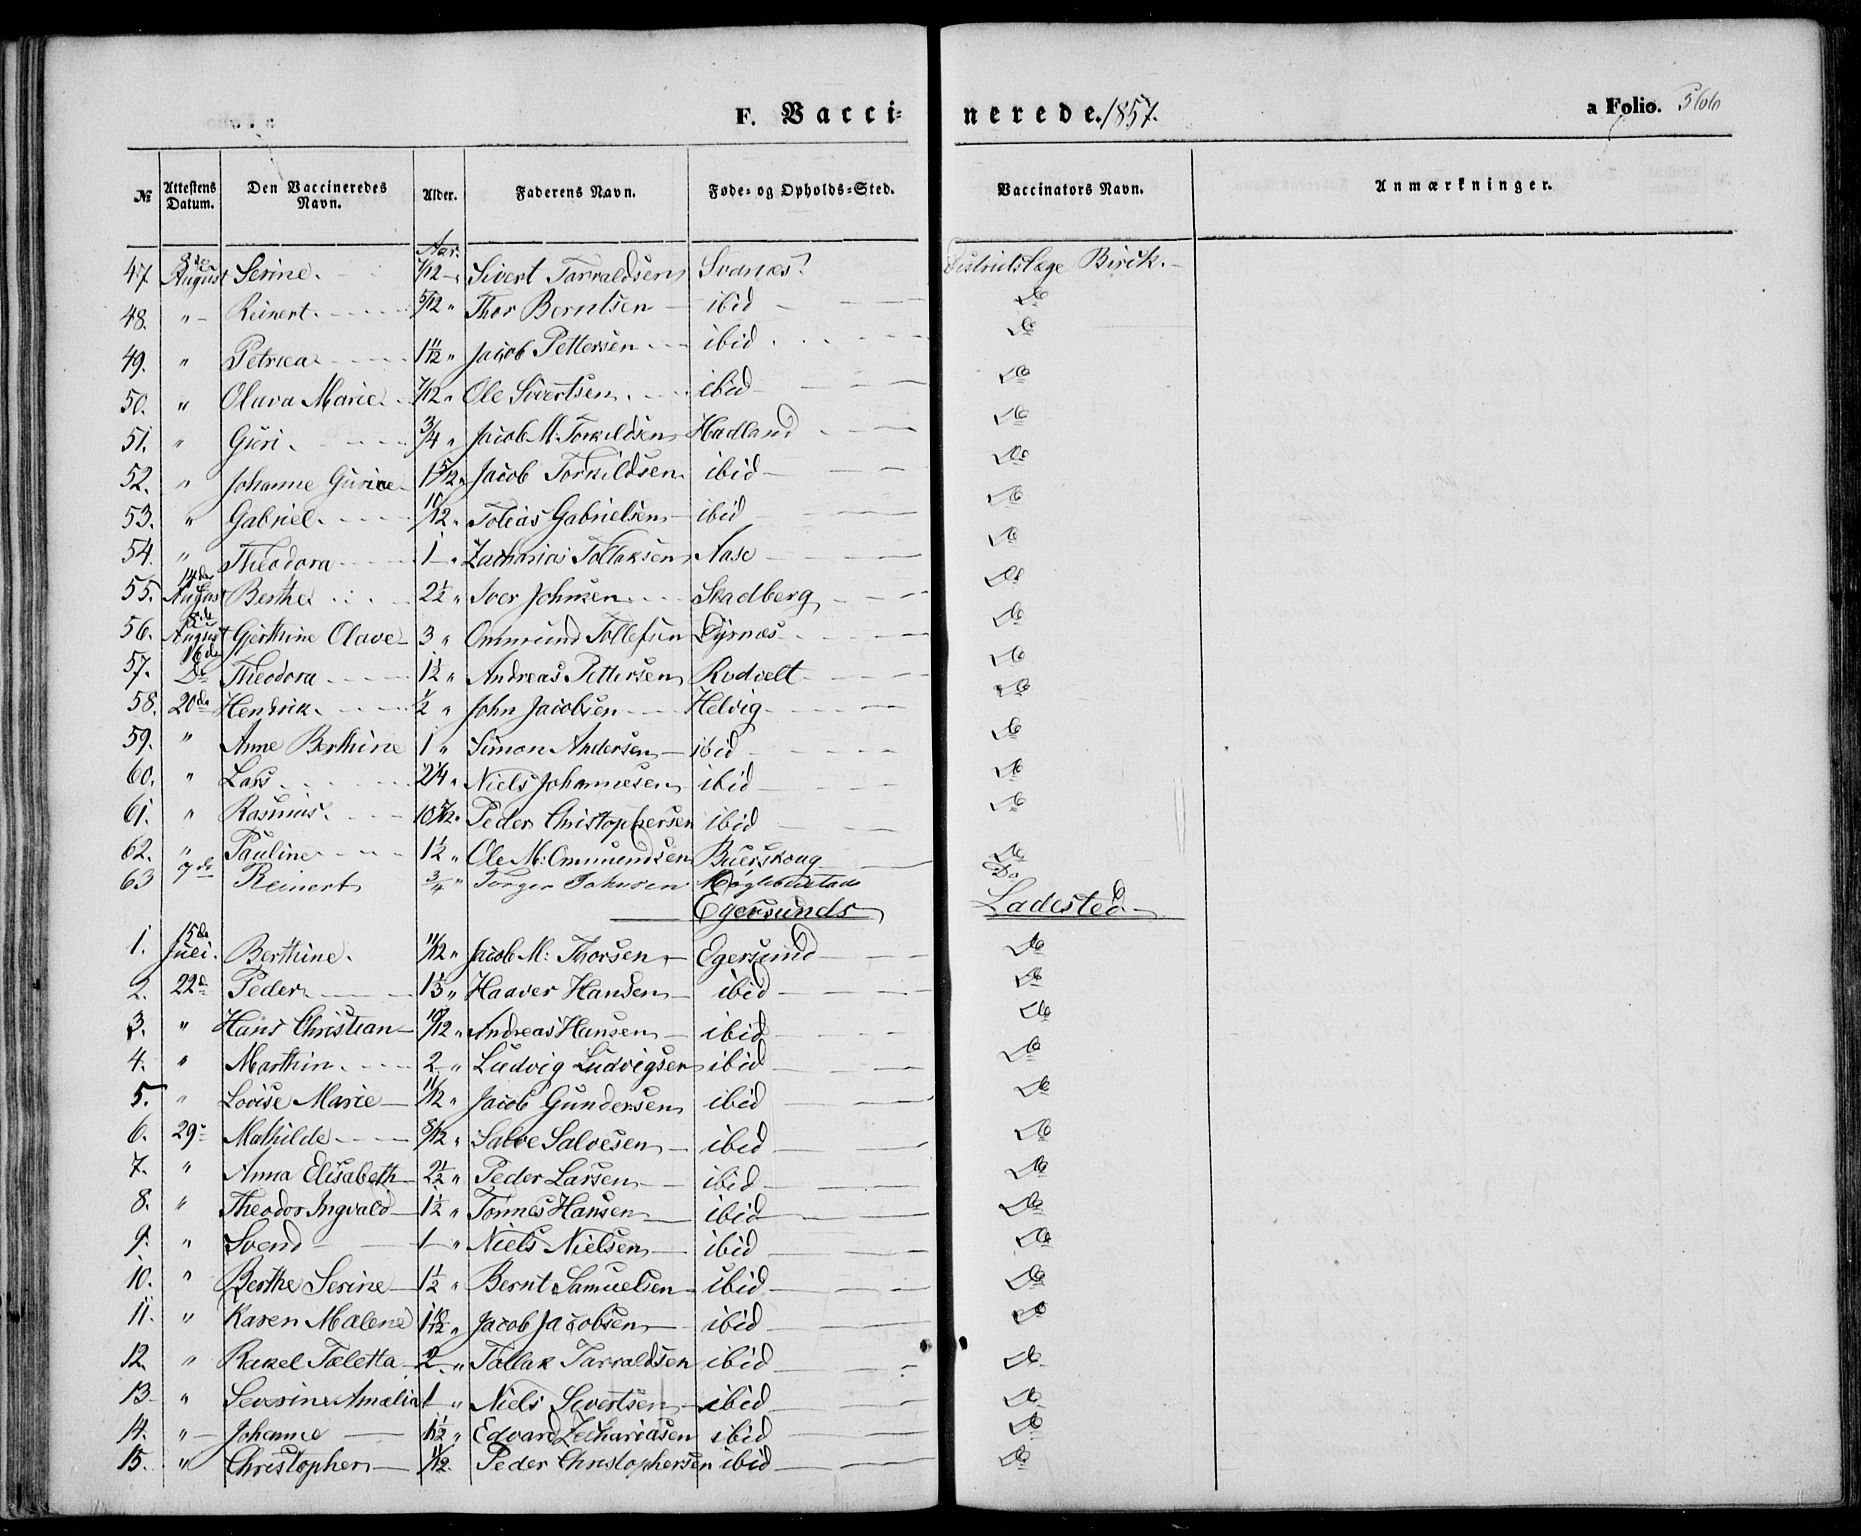 F. Vaccinerede. 1857. a Folio. 566
№ Attestens Datum. Den Vaccineredes Navn. Alder. Faderens Navn. Føde- og Opholds-Sted. Vaccinators Navn. Anmærkninger.
Aar.
47. 8de August Serine. 7/12 " Sivert Tarraldsen Svanæs. Districtslæge Birck.
48. " Reinert. 5/12 " Thor Berntsen ibid Do
49. " Petrea 1 11/12 " Jacob Pettersen ibid Do
50. " Olava Marie 7/12 " Ole Sivertsen ibid Do
51. " Guri. 3/4 " Jacob M. Torkildsen Hadland Do
52. " Johanne Gurine 1 5/12 " Jacob Torkildsen ibid Do
53. " Gabriel. 10/12 " Tobias Gabrielsen ibid Do
54. " Theodora 1 " Zacharias Tollaksen Aase Do
55. 14de August Berthe 2 1/2 " Iver Johnsen Skadberg Do
56. 8de August Gjerthine Olave 3 " Ommund Tollefsen Dyrnæs Do
57. 16de Do Theodora 1 1/2 " Andreas Pettersen Rodvelt Do
58. 20de Hendrik. 1/2 " John Jacobsen Helvig Do
59. " Anne Berthine 1 " Simon Andersen ibid Do
60. " Lars 2 1/4 " Niels Johannesen ibid Do
61. " Rasmus. 10 5/12 " Peder Christophersen ibid Do
62. " Pauline 1 1/2 " Ole M: Ommundsen Buerskoug Do
63 7de Reinert 3/4 " Torger Johnsen Møglebustad Do
Egersunds Ladested
1. 15de Juli. Berthine. 11/12 " Jacob M: Thorsen Egersund Do
2. 22de Peder 1 1/3 " Haaver Hansen ibid Do
3. " Hans Christian 10/12 " Andreas Hansen ibid Do
4. " Marthin. 2 " Ludvig Ludvigsen ibid Do
5. " Lovise Marie 11/12 " Jacob Gundersen ibid Do
6. 29de Mathilde 8/12 " Salve Salvesen ibid Do
7. " Anna Elisabeth 2 1/2 " Peder Larsen ibid Do
8. " Theodor Ingvald 1 1/2 " Tønnes Hansen ibid Do
9. " Svend 1 " Niels Nielsen ibid Do
10. " Berthe Serine 1 1/2 " Bernt Samuelsen ibid Do
11. " Karen Malene 1 10/12 " Jacob Jacobsen ibid Do
12. " Rakel Taletta 2 " Tollak Tarraldsen ibid Do
13. " Severine Amalia 1 " Niels Sivertsen ibid Do
14. " Johanne 1 1/2 " Edvard Zechariasen ibid Do
15. " Christopher 11/12. Peder Christophersen ibid Do